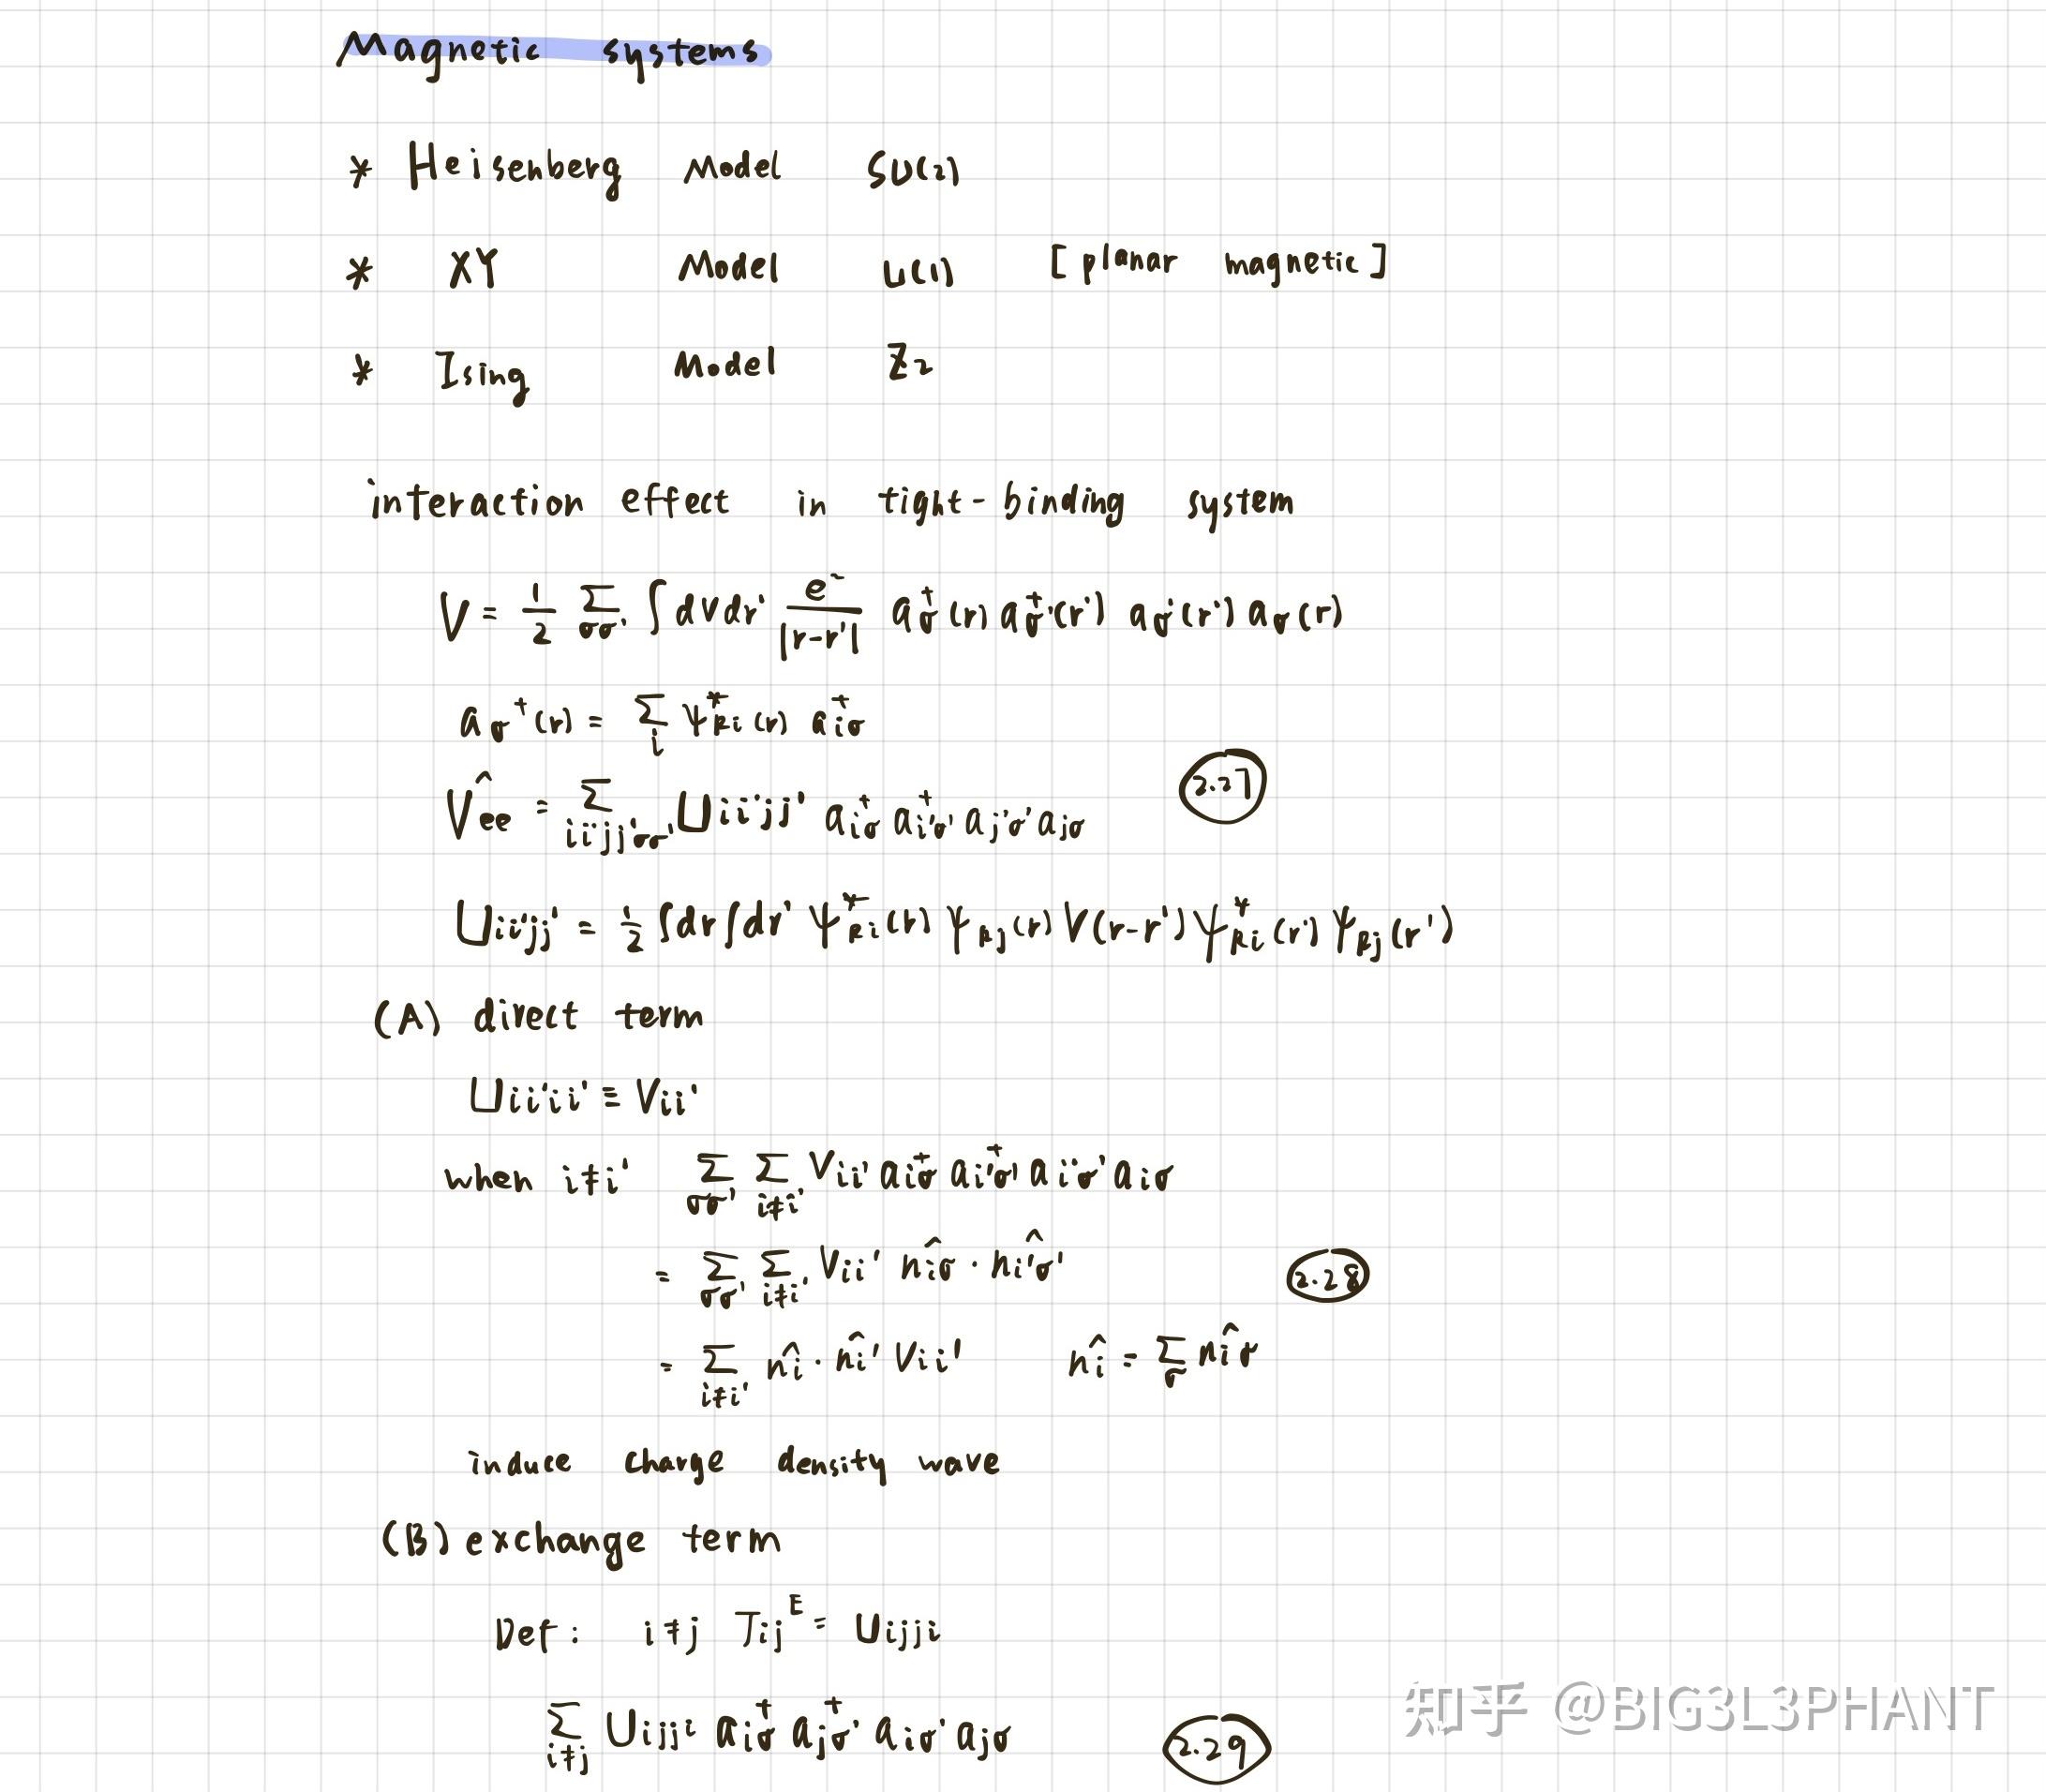 Magnetic systems
* Heisenberg Model SU(2)
* XY Model U(1) [planar magnetic]
* Ising Model Z₂
interaction effect in tight-binding system
V = 1/2 Σ_σσ' ∫dvdr' e⁻/|r-r'| a_σ†(r) a_σ'†(r') a_σ'(r') a_σ(r)
a_σ†(r) = Σ_i ψ*_Ri(r) a†_iσ
V̂ee = Σ_ii'jj'σσ' U_ii'jj' a†_iσ a†_i'σ' a_j'σ' a_jσ (2.27)
U_ii'jj' = 1/2 ∫dr∫dr' ψ*_Ri(r) ψ_Rj(r) V(r-r') ψ*_Ri(r') ψ_Rj(r')
(A) direct term
U_ii'ii' ≡ V_ii'
when i≠i' Σ_σσ' Σ_i≠i' V_ii' a†_iσ a†_i'σ' a_i'σ' a_iσ
= Σ_σσ' Σ_i≠i' V_ii' n̂_iσ · n̂_i'σ' (2.28)
= Σ_i≠i' n̂_i · n̂_i' V_ii' n̂_i = Σ_σ n̂_iσ
induce charge density wave
(B) exchange term
Def: i≠j J_ij^E = U_ijji
Σ_i≠j U_ijji a†_iσ a†_jσ' a_iσ' a_jσ (2.29)
知乎 @BIG3L3PHANT